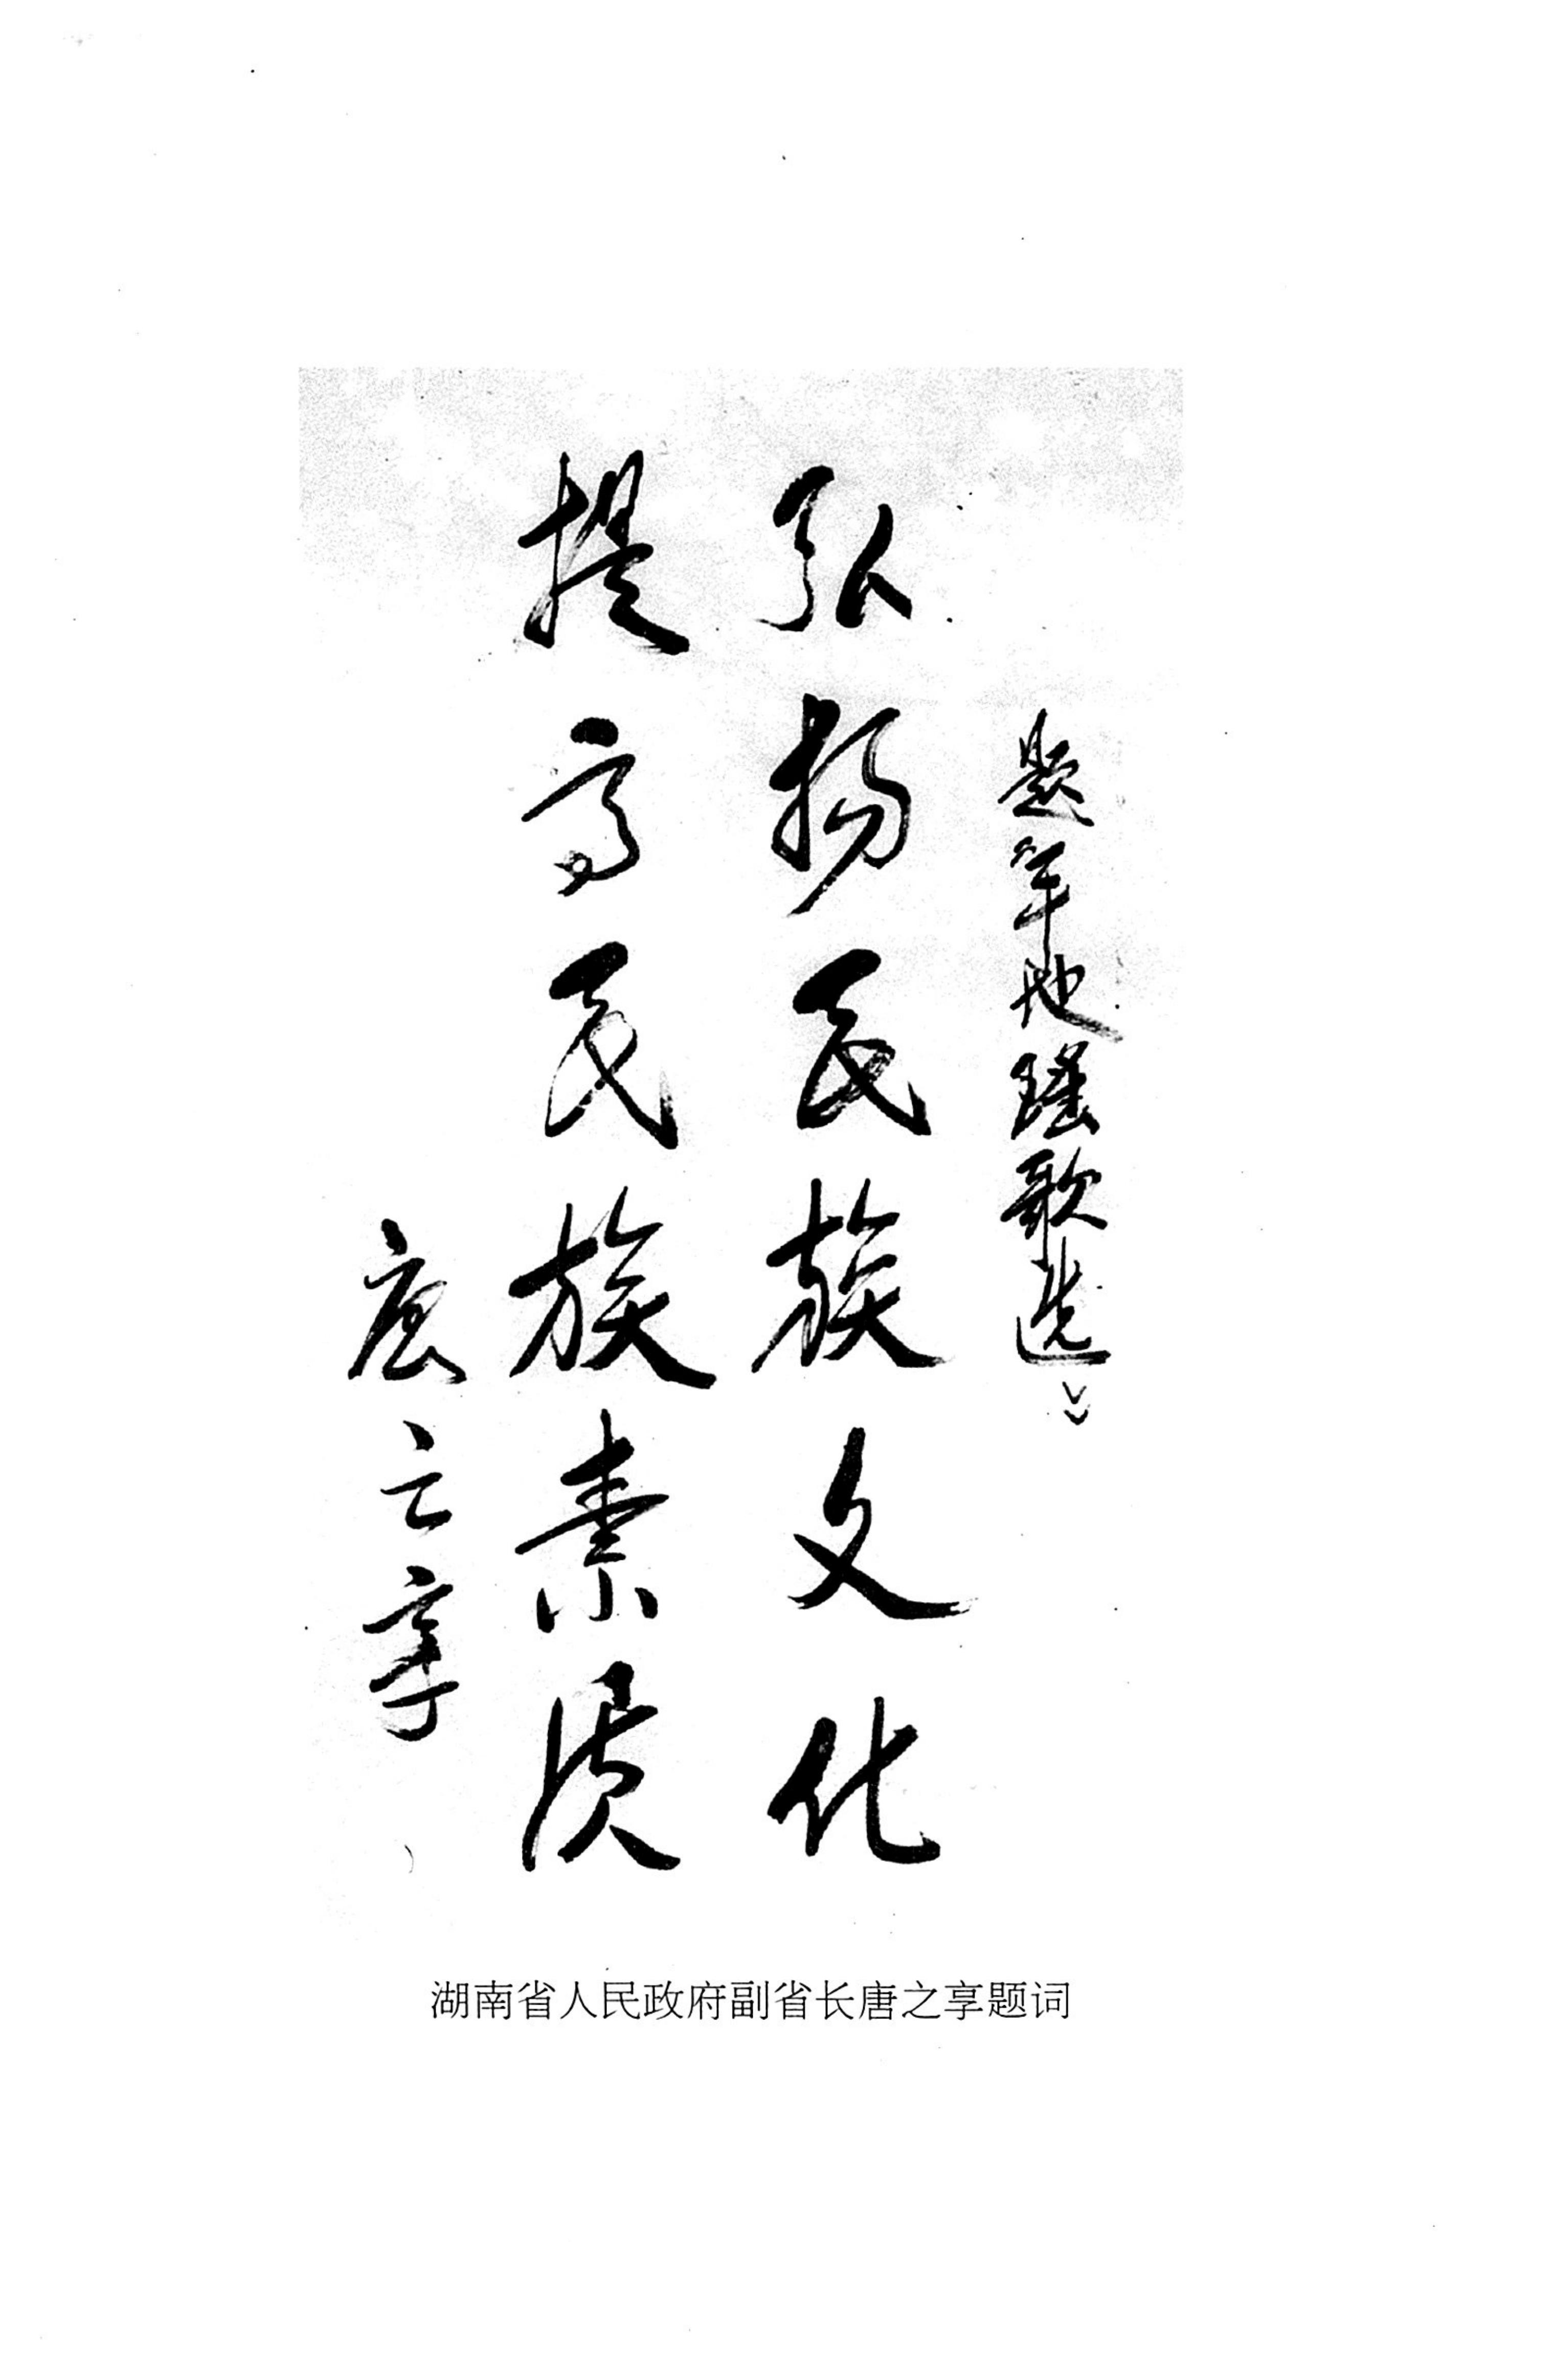 题《平地瑶歌选》
弘扬民族文化
提高民族素质
唐之享
湖南省人民政府副省长唐之享题词